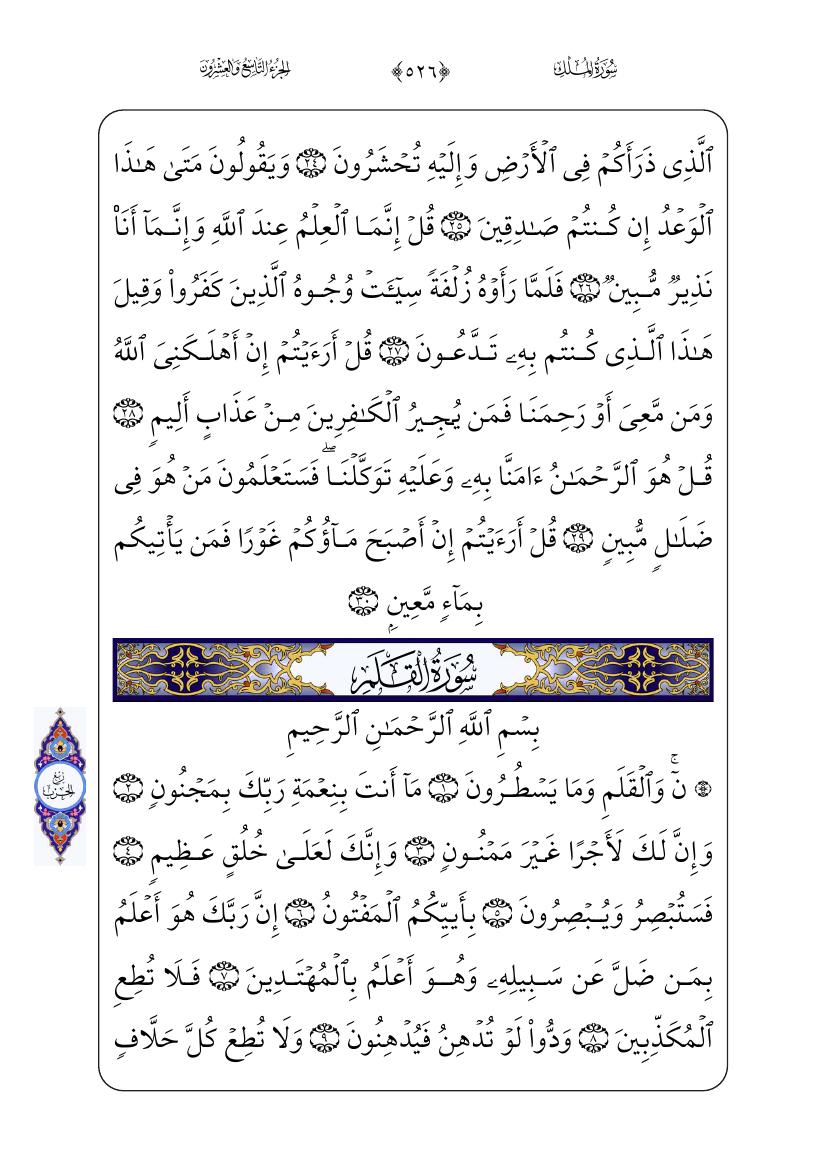 سُورَةُ المُلْكِ
﴿٥٢٦﴾
الجُزْءُ التَّاسِعُ وَالعِشْرُونَ
ٱلَّذِى ذَرَأَكُمْ فِى ٱلْأَرْضِ وَإِلَيْهِ تُحْشَرُونَ ٢٤ وَيَقُولُونَ مَتَىٰ هَـٰذَا
ٱلْوَعْدُ إِن كُنتُمْ صَـٰدِقِينَ ٢٥ قُلْ إِنَّمَا ٱلْعِلْمُ عِندَ ٱللَّهِ وَإِنَّمَآ أَنَا۠
نَذِيرٌ مُّبِينٌ ٢٦ فَلَمَّا رَأَوْهُ زُلْفَةً سِيٓـَٔتْ وُجُوهُ ٱلَّذِينَ كَفَرُوا۟ وَقِيلَ
هَـٰذَا ٱلَّذِى كُنتُم بِهِۦ تَدَّعُونَ ٢٧ قُلْ أَرَءَيْتُمْ إِنْ أَهْلَكَنِىَ ٱللَّهُ
وَمَن مَّعِىَ أَوْ رَحِمَنَا فَمَن يُجِيرُ ٱلْكَـٰفِرِينَ مِنْ عَذَابٍ أَلِيمٍ ٢٨
قُلْ هُوَ ٱلرَّحْمَـٰنُ ءَامَنَّا بِهِۦ وَعَلَيْهِ تَوَكَّلْنَا ۖ فَسَتَعْلَمُونَ مَنْ هُوَ فِى
ضَلَـٰلٍ مُّبِينٍ ٢٩ قُلْ أَرَءَيْتُمْ إِنْ أَصْبَحَ مَآؤُكُمْ غَوْرًا فَمَن يَأْتِيكُم
بِمَآءٍ مَّعِينٍۭ ٣٠
سُورَةُ القَلَمِ
بِسْمِ ٱللَّهِ ٱلرَّحْمَـٰنِ ٱلرَّحِيمِ
رُبْعُ الحِزْبِ
۞ نٓ ۚ وَٱلْقَلَمِ وَمَا يَسْطُرُونَ ١ مَآ أَنتَ بِنِعْمَةِ رَبِّكَ بِمَجْنُونٍ ٢
وَإِنَّ لَكَ لَأَجْرًا غَيْرَ مَمْنُونٍ ٣ وَإِنَّكَ لَعَلَىٰ خُلُقٍ عَظِيمٍ ٤
فَسَتُبْصِرُ وَيُبْصِرُونَ ٥ بِأَييِّكُمُ ٱلْمَفْتُونُ ٦ إِنَّ رَبَّكَ هُوَ أَعْلَمُ
بِمَن ضَلَّ عَن سَبِيلِهِۦ وَهُوَ أَعْلَمُ بِٱلْمُهْتَدِينَ ٧ فَلَا تُطِعِ
ٱلْمُكَذِّبِينَ ٨ وَدُّوا۟ لَوْ تُدْهِنُ فَيُدْهِنُونَ ٩ وَلَا تُطِعْ كُلَّ حَلَّافٍ